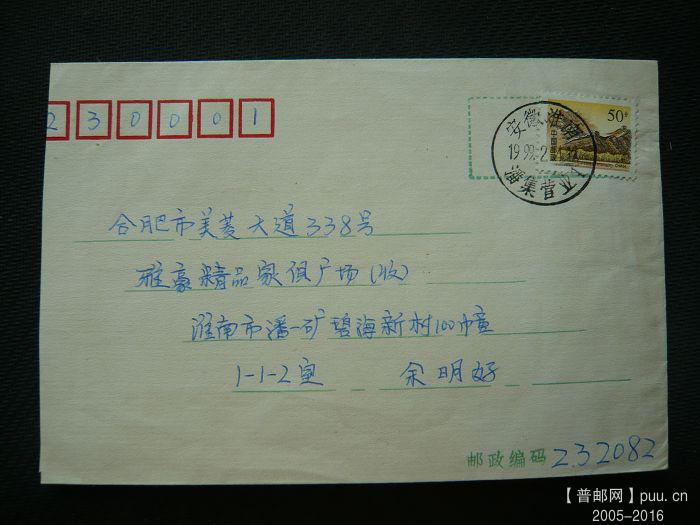 230001
50分
中国邮政
安徽淮南
1999.2
集营业
合肥市美菱大道338号
雅豪精品家俱广场(收)
淮南市潘一矿碧海新村100幢
1-1-2室 余明好
邮政编码 232082
【普邮网】puu.cn
2005-2016